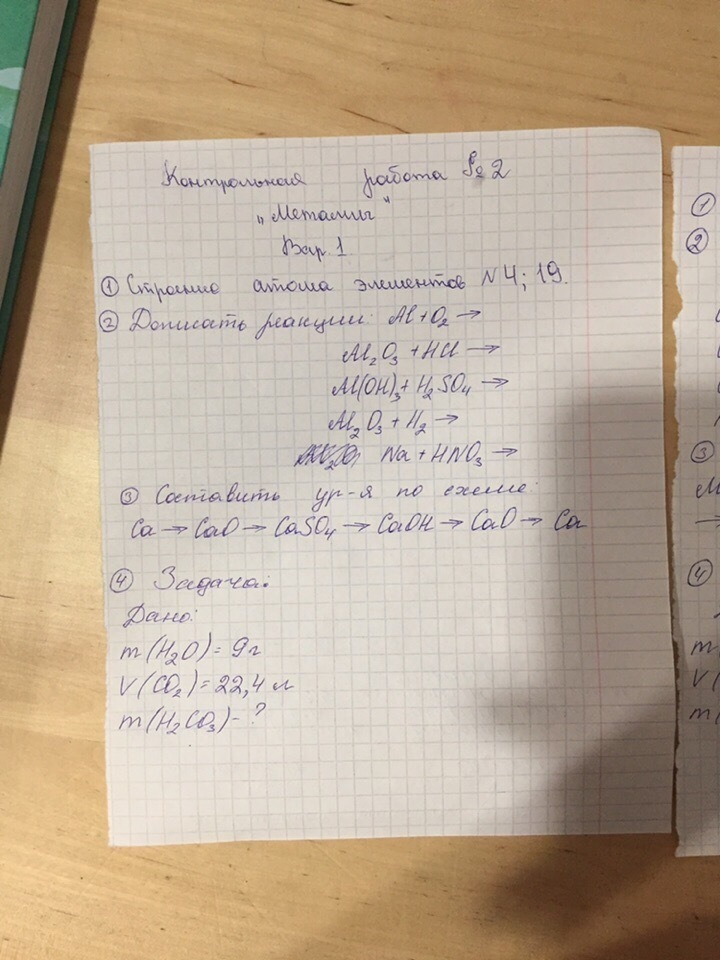 Контрольная работа № 2
„Металлы"
Вар. 1
① Строение атома элементов N 4; 19.
② Дописать реакции: Al + O₂ →
Al₂O₃ + HCl →
Al(OH)₃ + H₂SO₄ →
Al₂O₃ + H₂ →
Na + HNO₃ →
③ Составить ур-я по схеме:
Ca → CaO → CaSO₄ → CaOH → CaO → Ca
④ Задача:
Дано:
m(H₂O) = 9г
V(CO₂) = 22,4 л
m(H₂CO₃) - ?
①
②
③
④